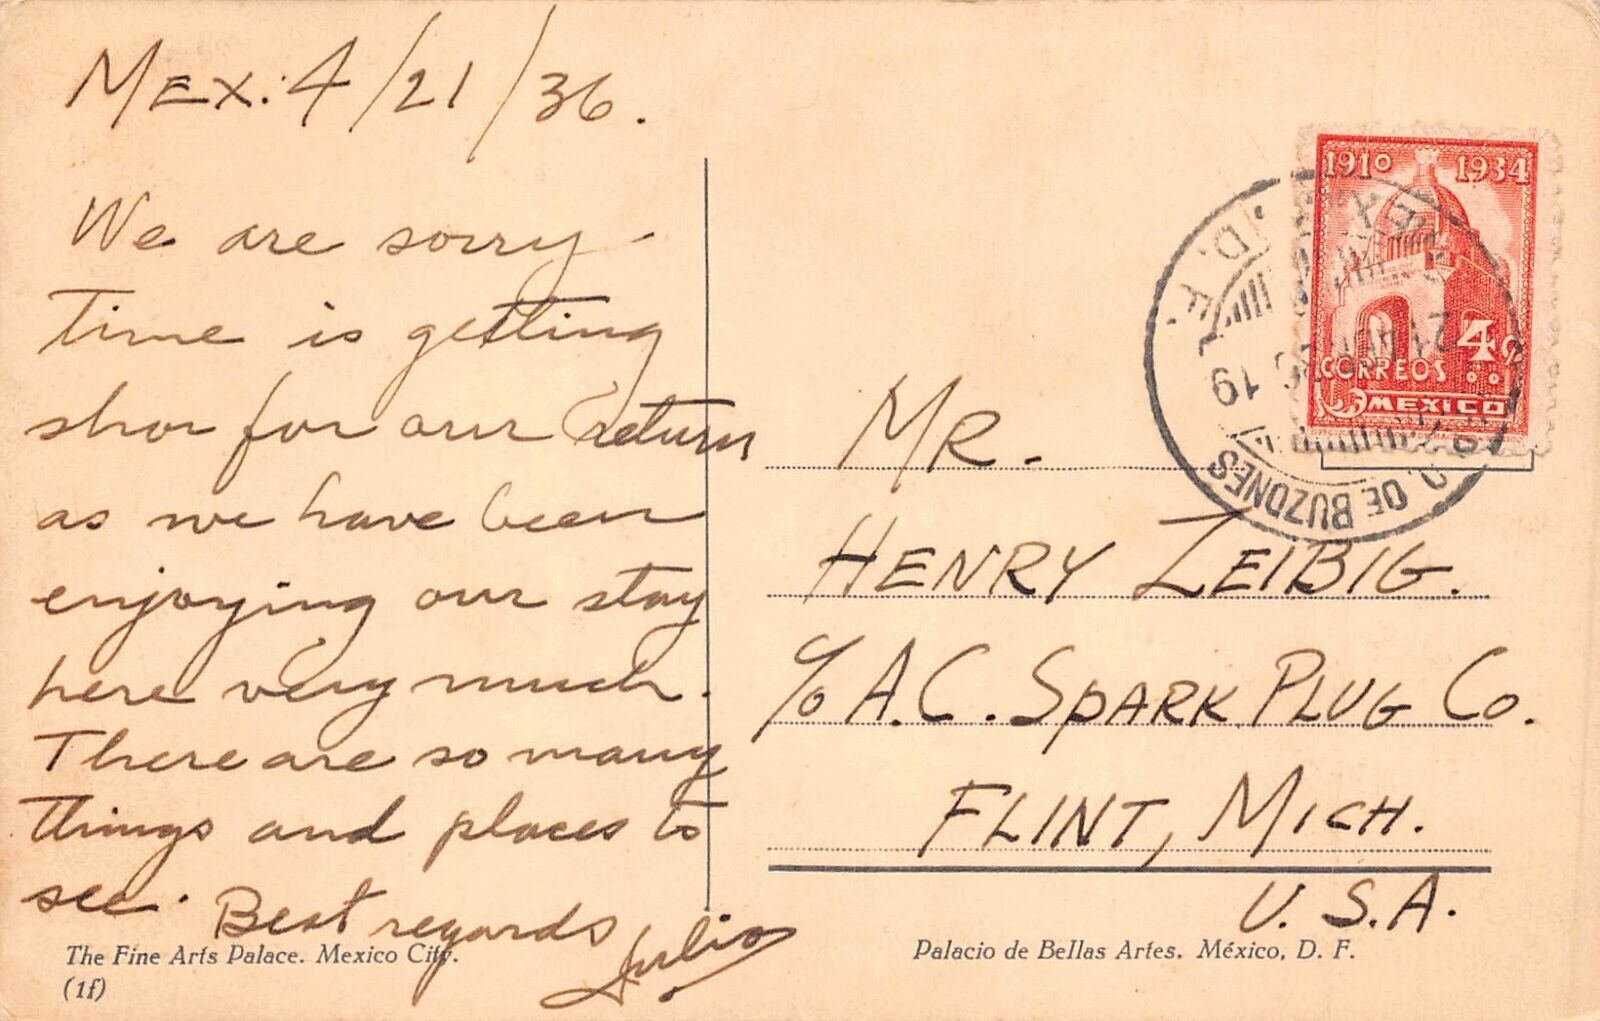 Mex: 4/21/36.
We are sorry -
Time is getting
shor for our return
as we have been
enjoying our stay
here very much.
There are so many
things and places to
see. Best regards
Julio
The Fine Arts Palace. Mexico City.
(1f)
1910 1934
4¢
CORREOS
MEXICO
D. F.
21
19
DE BUZONES
MR.
HENRY LEIBIG.
c/o A.C. SPARK PLUG Co.
FLINT, MICH.
U.S.A.
Palacio de Bellas Artes. México, D. F.